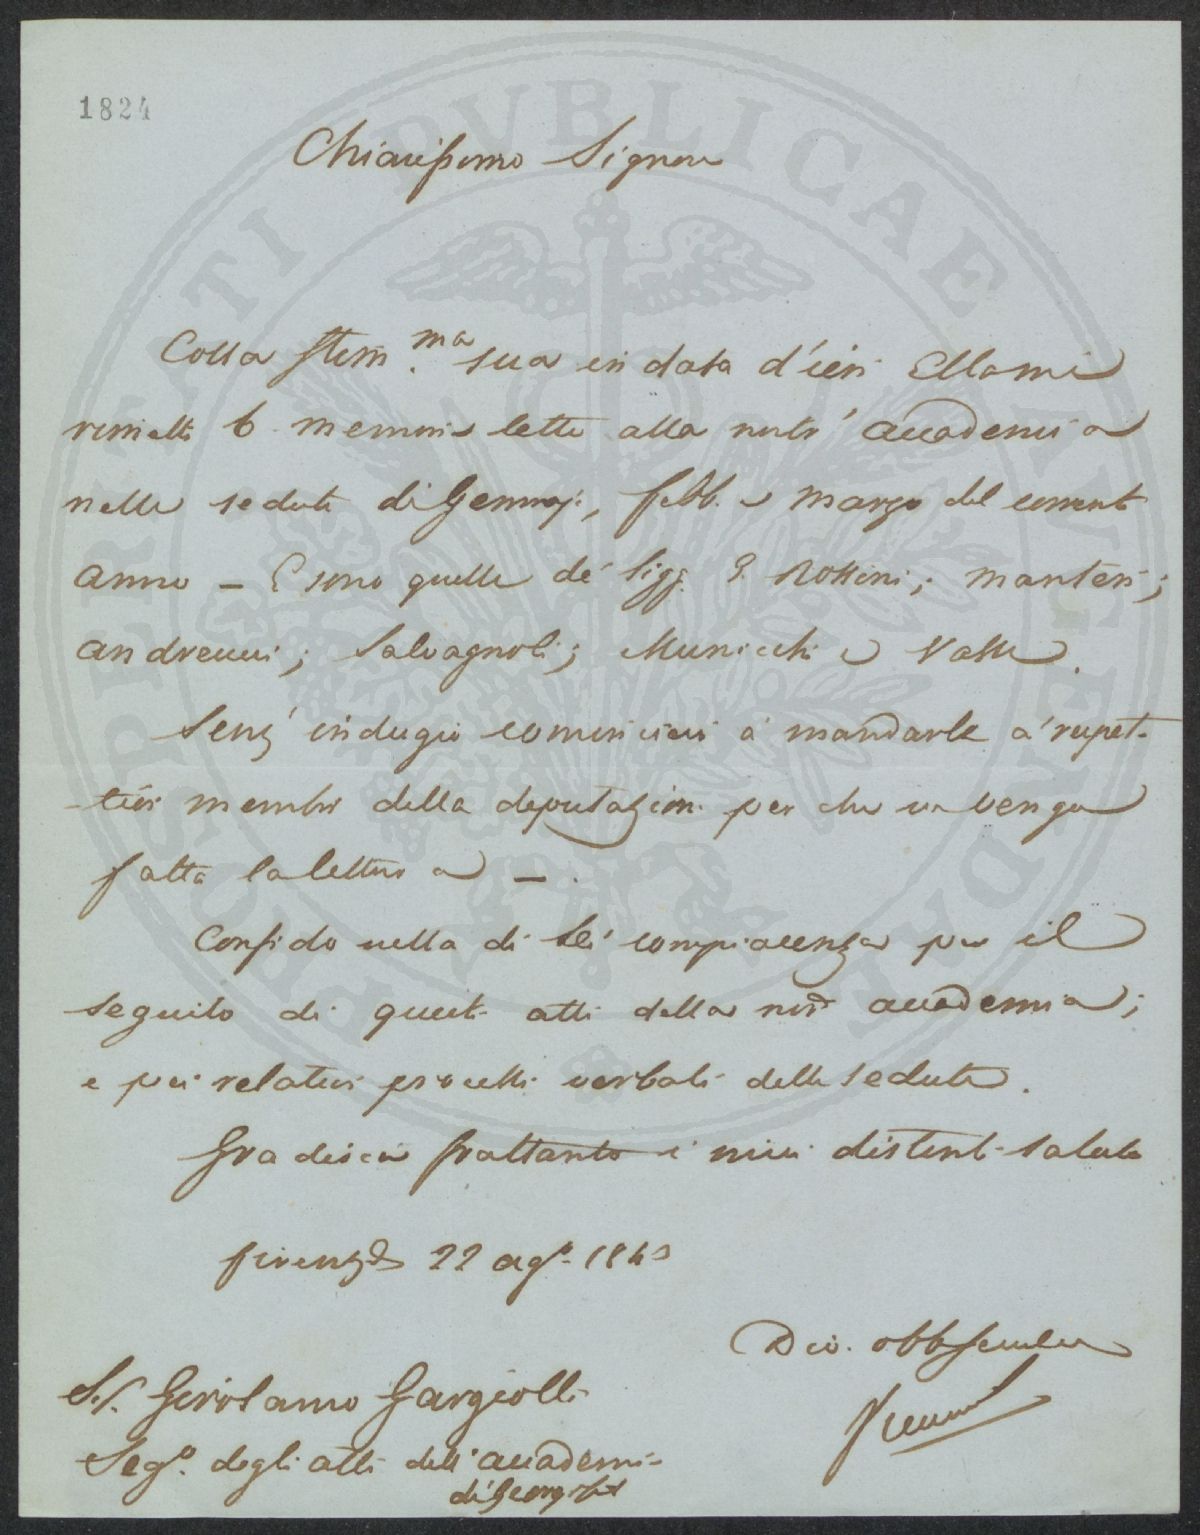 1824
PROSPERITATI PVBLICAE AVGENDAE
Chiarissimo Signore
Colla stim.ma sua in data d'ieri Ella mi
rimette 6 memorie lette alla nostr' accademia
nelle sedute di Genn, febb. e marzo del corrente
anno – E sono quelle de' Sigg. Rossini; Manteri;
Andreucci; Salvagnoli; Municchi e
Senz' indugio comincier a mandarle a' rispet-
tivi membri della deputazione per che ne venga
fatta la lettura –.
Confido nella di Lei compiacenza per il
seguito di questi atti della nostr accademia;
e pei relativi processi verbali delle sedute.
Gradisca frattanto i miei distinti saluti
Firenze 22 ago. 184
Dev. obb. servitore
S.r. Girolamo Gargiolli
Seg.o degli atti dell' accademia
de' Georgofili